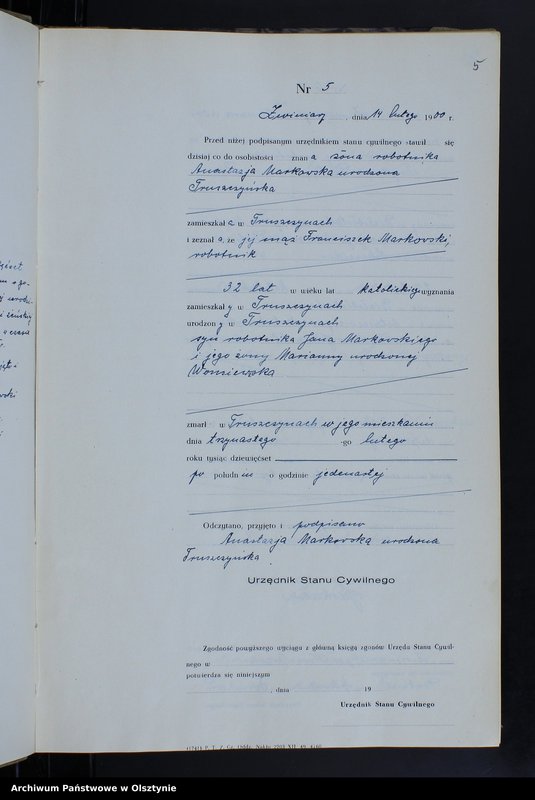 5
Nr 5
Zwiniarz, dnia 14 lutego 1900 r.
Przed niżej podpisanym urzędnikiem stanu cywilnego stawił się
dzisiaj co do osobistości znana żona robotnika
Anastazja Markowska urodzona
Truszczyńska
zamieszkała w Truszczynach
i zeznała, że jej mąż Franciszek Markowski,
robotnik
32 lat w wieku lat katolickiego wyznania
zamieszkały w Truszczynach
urodzony w Truszczynach
syn robotnika Jana Markowskiego
i jego żony Marianny urodzonej
zmarł w Truszczynach w jego mieszkaniu
dnia trzynastego -go lutego
roku tysiąc dziewięćset
po południu o godzinie jedenastej
Odczytano, przyjęto i podpisano
Anastazja Markowska urodzona
Truszczyńska
Urzędnik Stanu Cywilnego
Zgodność powyższego wyciągu z główną księgą zgonów Urzędu Stanu Cywil-
nego w
potwierdza się niniejszym
, dnia 19
Urzędnik Stanu Cywilnego
Archiwum Państwowe w Olsztynie